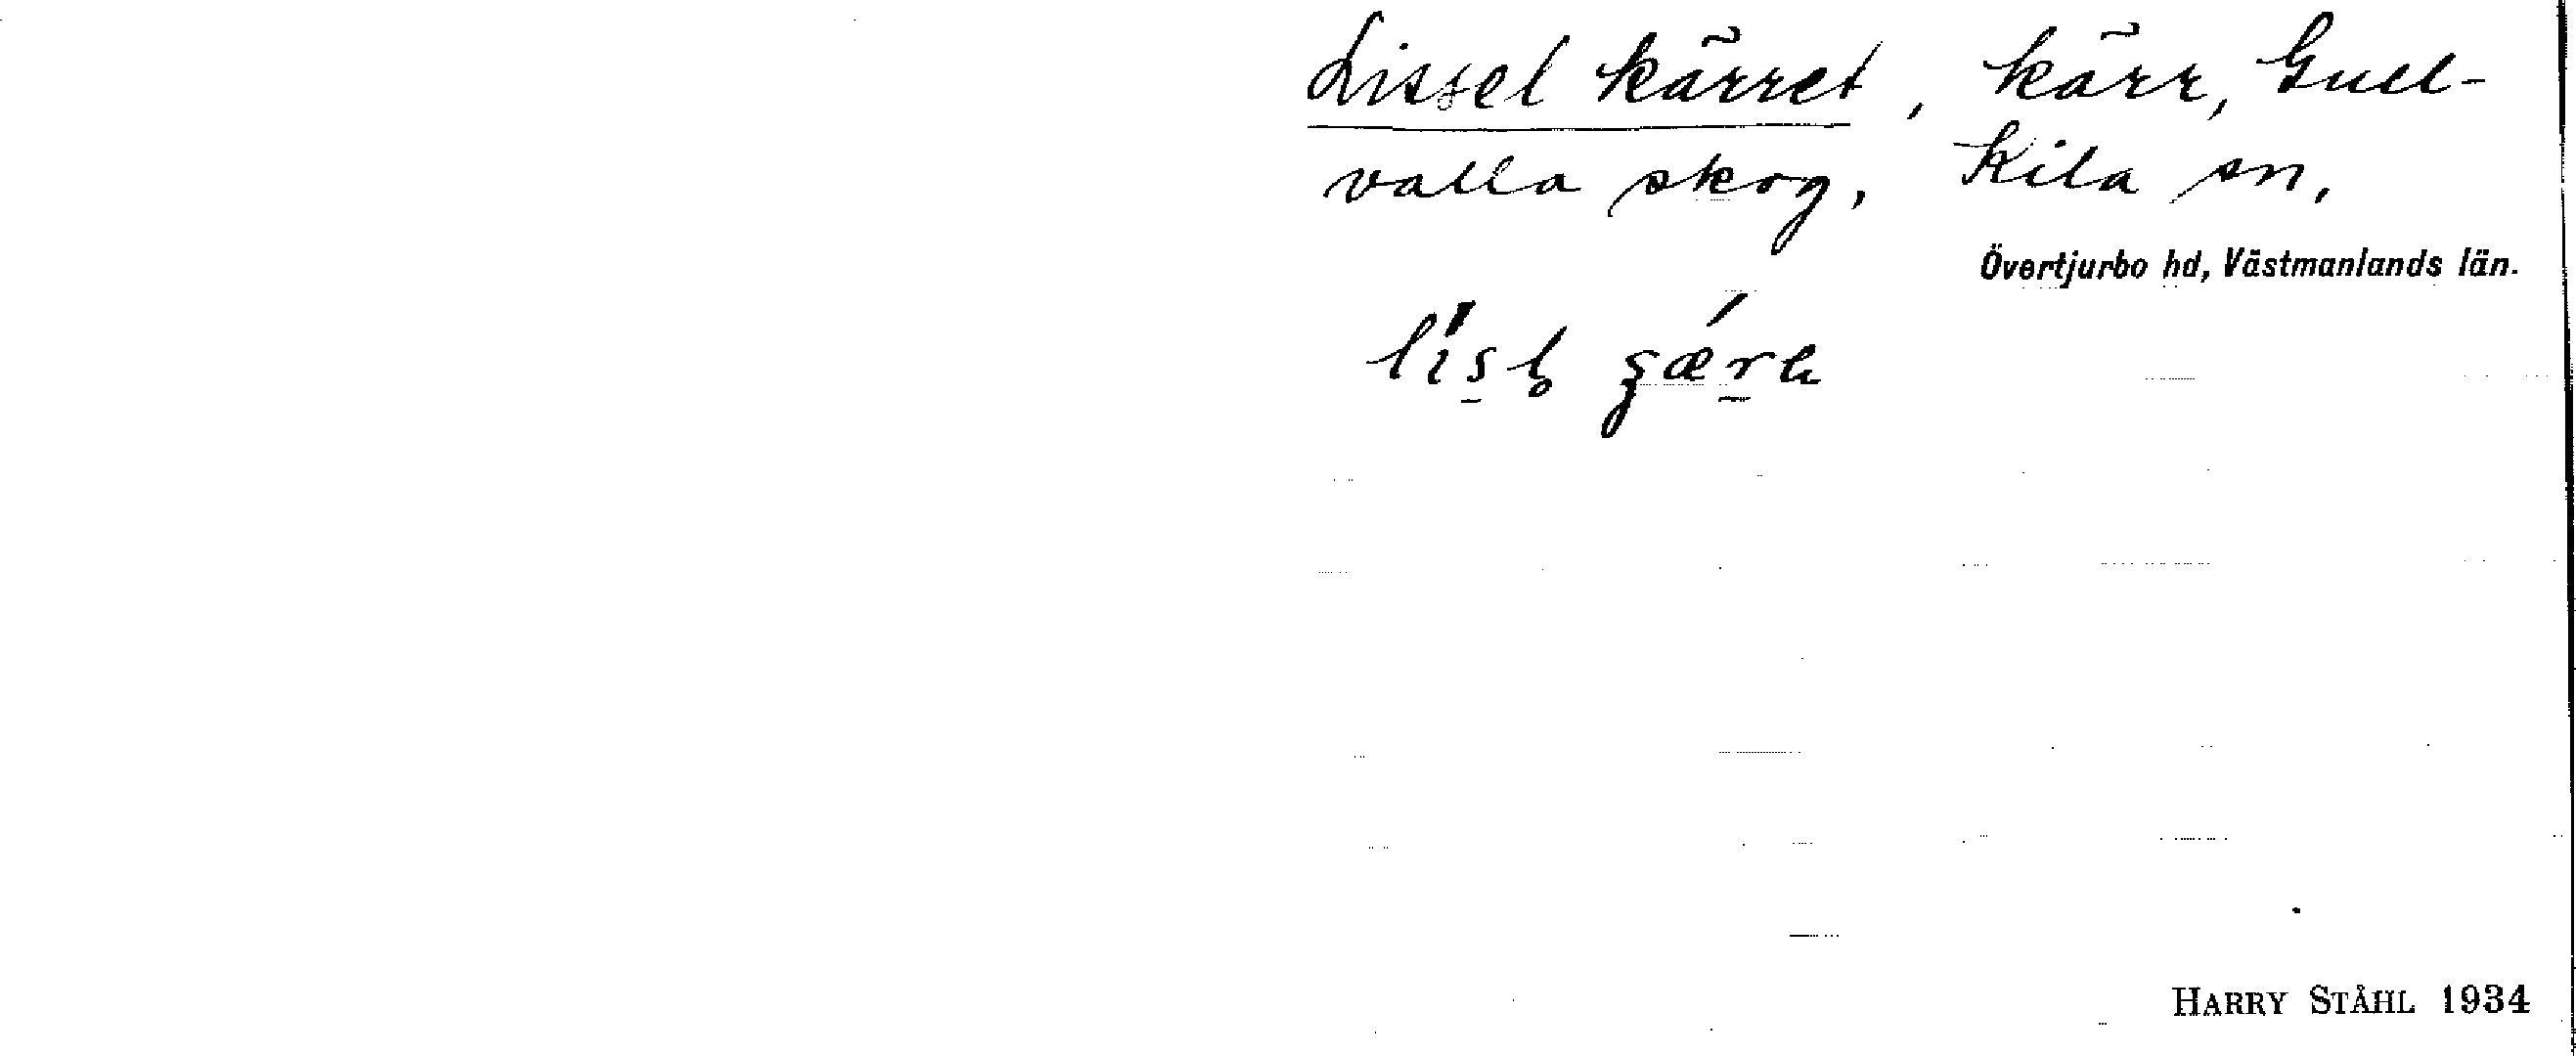 Lissel kärret, kärr, Gull-
valla skog, Kila sn,
Övertjurbo hd, Västmanlands län.
HARRY STÅHL 1934